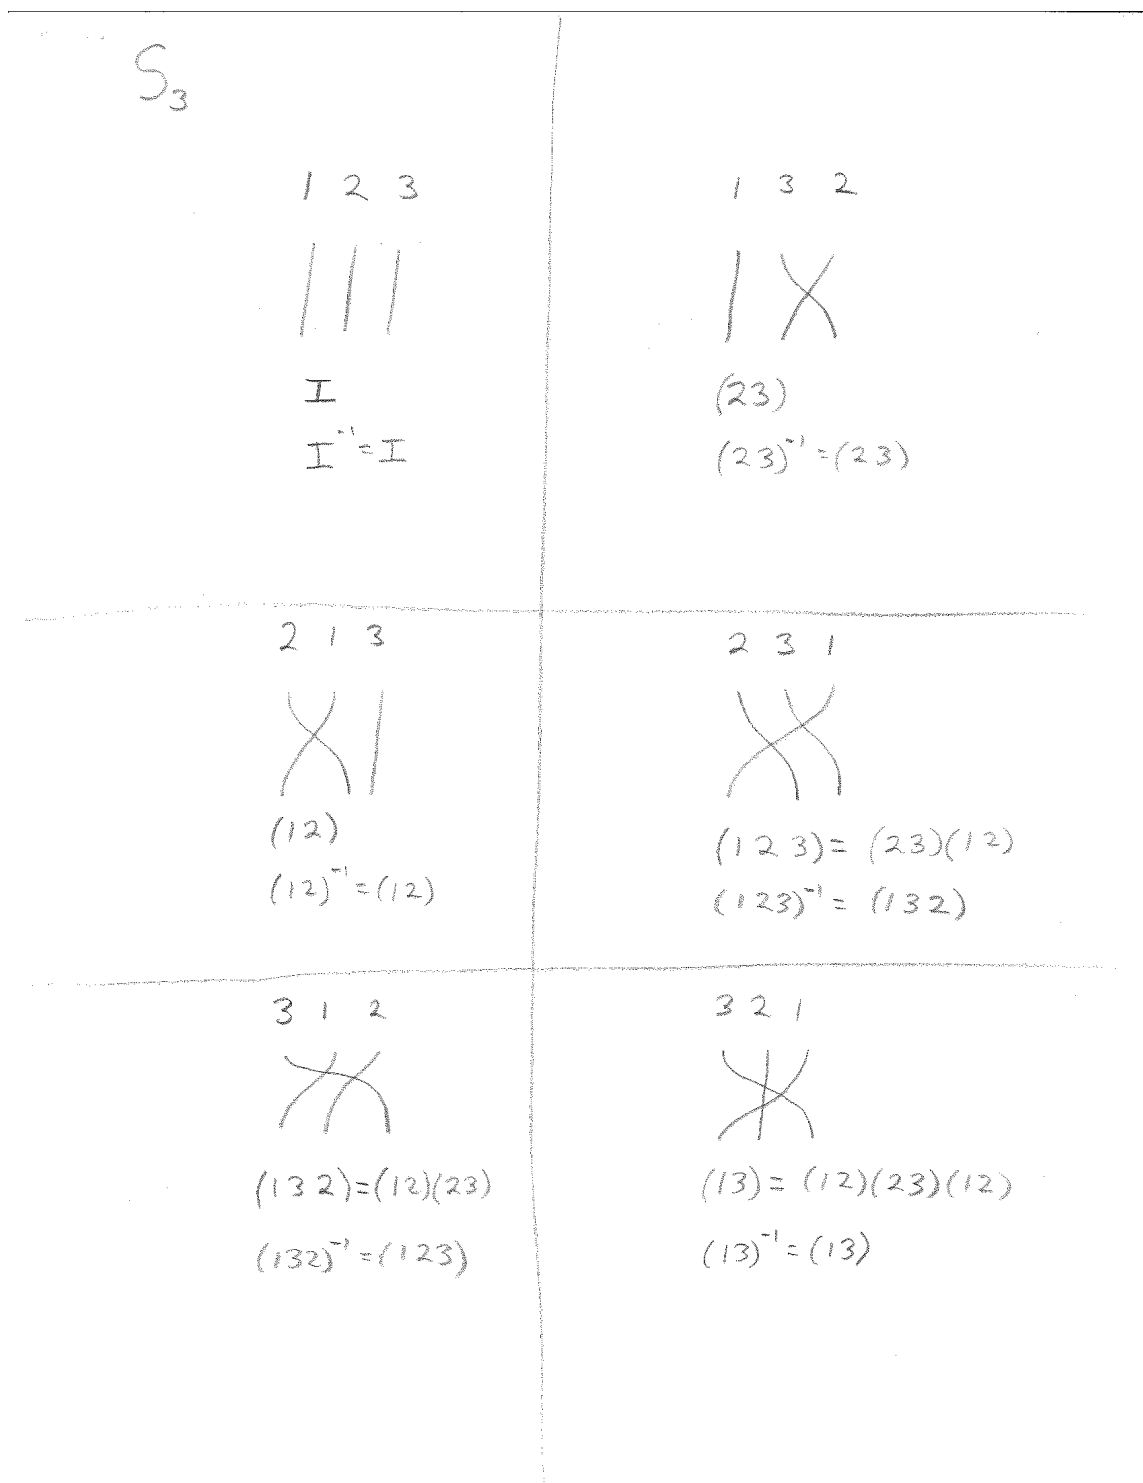 S₃
1 2 3
I
I⁻¹=I
1 3 2
(23)
(23)⁻¹=(23)
2 1 3
(12)
(12)⁻¹=(12)
2 3 1
(123)=(23)(12)
(123)⁻¹=(132)
3 1 2
(132)=(12)(23)
(132)⁻¹=(123)
3 2 1
(13)=(12)(23)(12)
(13)⁻¹=(13)